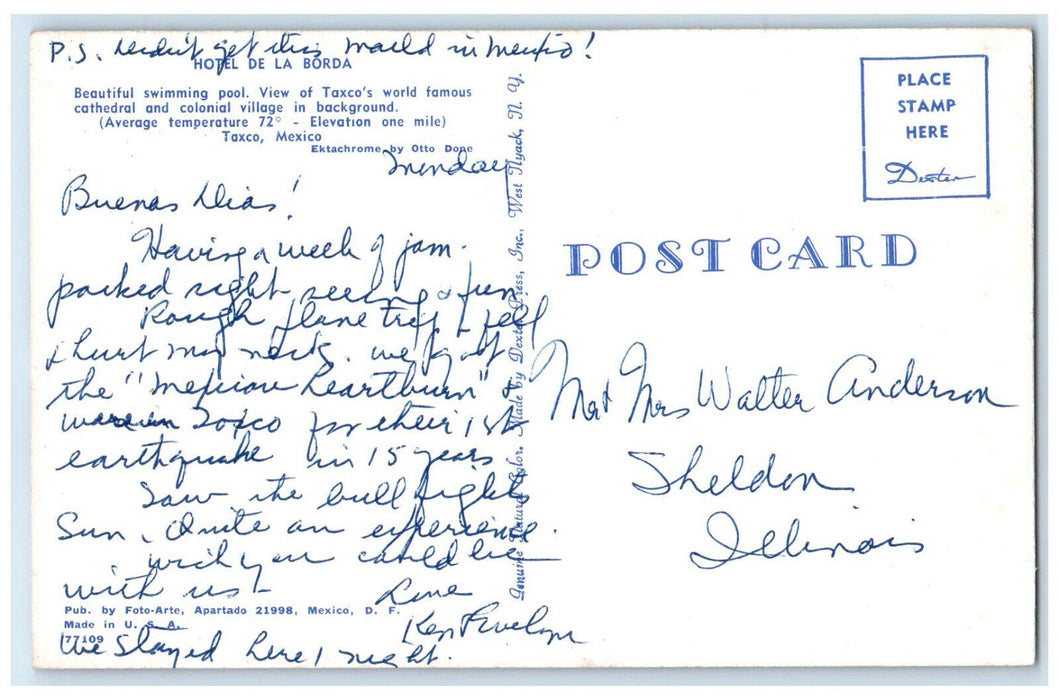 P.S. didn't get this maild in Mexico!
HOTEL DE LA BORDA
Beautiful swimming pool. View of Taxco's world famous
cathedral and colonial village in background.
(Average temperature 72° - Elevation one mile)
Taxco, Mexico
Ektachrome by Otto Done
Monday
Buenas Dias!
Having a week of jam-
packed sight seeing & fun
Rough plane trip I fell
& hurt my neck. we got
the "Mexican heartburn" &
were in Taxco for their 1st
earthquake in 15 years
Saw the bull fights
Sun. Quite an experience.
wish you could be
with us -
Love
Ken & Evelyn
Pub. by Foto-Arte, Apartado 21998, Mexico, D. F.
Made in U. S. A.
77109
We Stayed here 1 night.
Genuine Natural Color. Made by Dexter Press, Inc., West Nyack, N. Y.
PLACE
STAMP
HERE
Dexter
POST CARD
Mr & Mrs Walter Anderson
Sheldon
Illinois